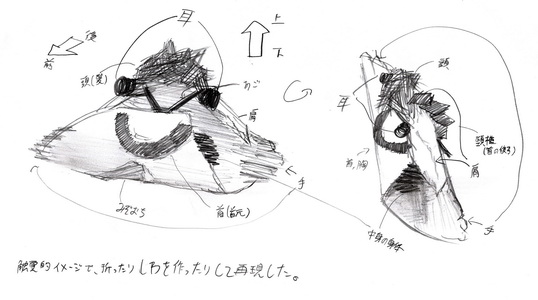 耳
上
下
後
前
頭(髪)
あご
肩
手
みぞおち
首(首元)
頭
耳
頸椎
(首の後ろ)
首,胸
肩
手
中身の身体
触覚的イメージで、折ったりしわを作ったりして再現した。